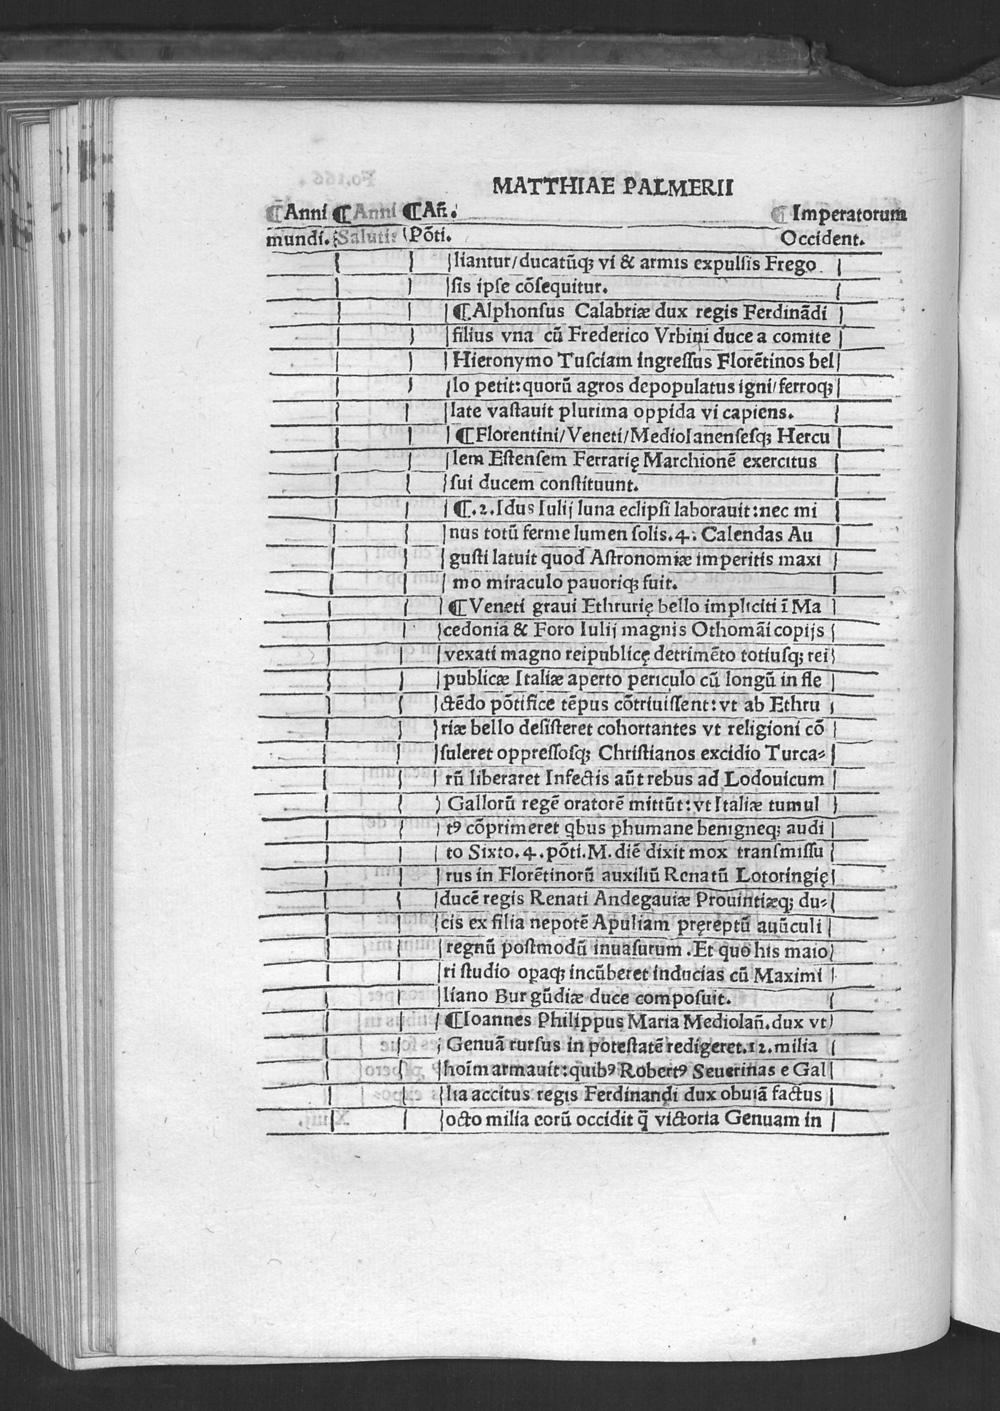 MATTHIAE PALMERII
¶Anni ¶Anni ¶Añ. ¶ Imperatorum
mundi. Salutis Põti. Occident.
liantur/ducatũq; vi & armis expulsis Frego
sis ipse cõsequitur.
¶Alphonsus Calabriæ dux regis Ferdinãdi
filius vna cũ Frederico Vrbini duce a comite
Hieronymo Tusciam ingressus Florẽtinos bel
lo petit: quorũ agros depopulatus igni/ferroq;
late vastauit plurima oppida vi capiens.
¶Florentini/Veneti/Mediolanensesq; Hercu
lem Estensem Ferrarię Marchionẽ exercitus
sui ducem constituunt.
¶.2. Idus Iulij luna eclipsi laborauit: nec mi
nus totũ ferme lumen solis.4. Calendas Au
gusti latuit quod Astronomiæ imperitis maxi
mo miraculo pauoriq; fuit.
¶Veneti graui Ethrurię bello impliciti ĩ Ma
cedonia & Foro Iulij magnis Othomãi copijs
vexati magno reipublicę detrimẽto totiusq; rei
publicæ Italiæ aperto periculo cũ longũ in fle
ctẽdo põtifice tẽpus cõtriuissent: vt ab Ethru
riæ bello desisteret cohortantes vt religioni cõ
suleret oppressosq; Christianos excidio Turca=
rũ liberaret Infectis aũt rebus ad Lodouicum
Gallorũ regẽ oratorẽ mittũt: vt Italiæ tumul
tꝰ cõprimeret qbus phumane benigneq; audi
to Sixto.4. põti.M. diẽ dixit mox transmissu
rus in Florẽtinorũ auxiliũ Renatũ Lotoringię
ducẽ regis Renati Andegauiæ Prouintiæq; du=
cis ex filia nepotẽ Apuliam pręreptũ auũculi
regnũ postmodũ inuasurum .Et quo his maio
ri studio opaq; incũberet inducias cũ Maximi
liano Burgũdiæ duce composuit.
¶Ioannes Philippus Maria Mediolañ. dux vt
Genuã rursus in potestatẽ redigeret.12. milia
hoĩm armauit: quibꝰ Robertꝰ Seuerinas e Gal
lia accitus regis Ferdinandi dux obuiã factus
octo milia eorũ occidit q̃ victoria Genuam in